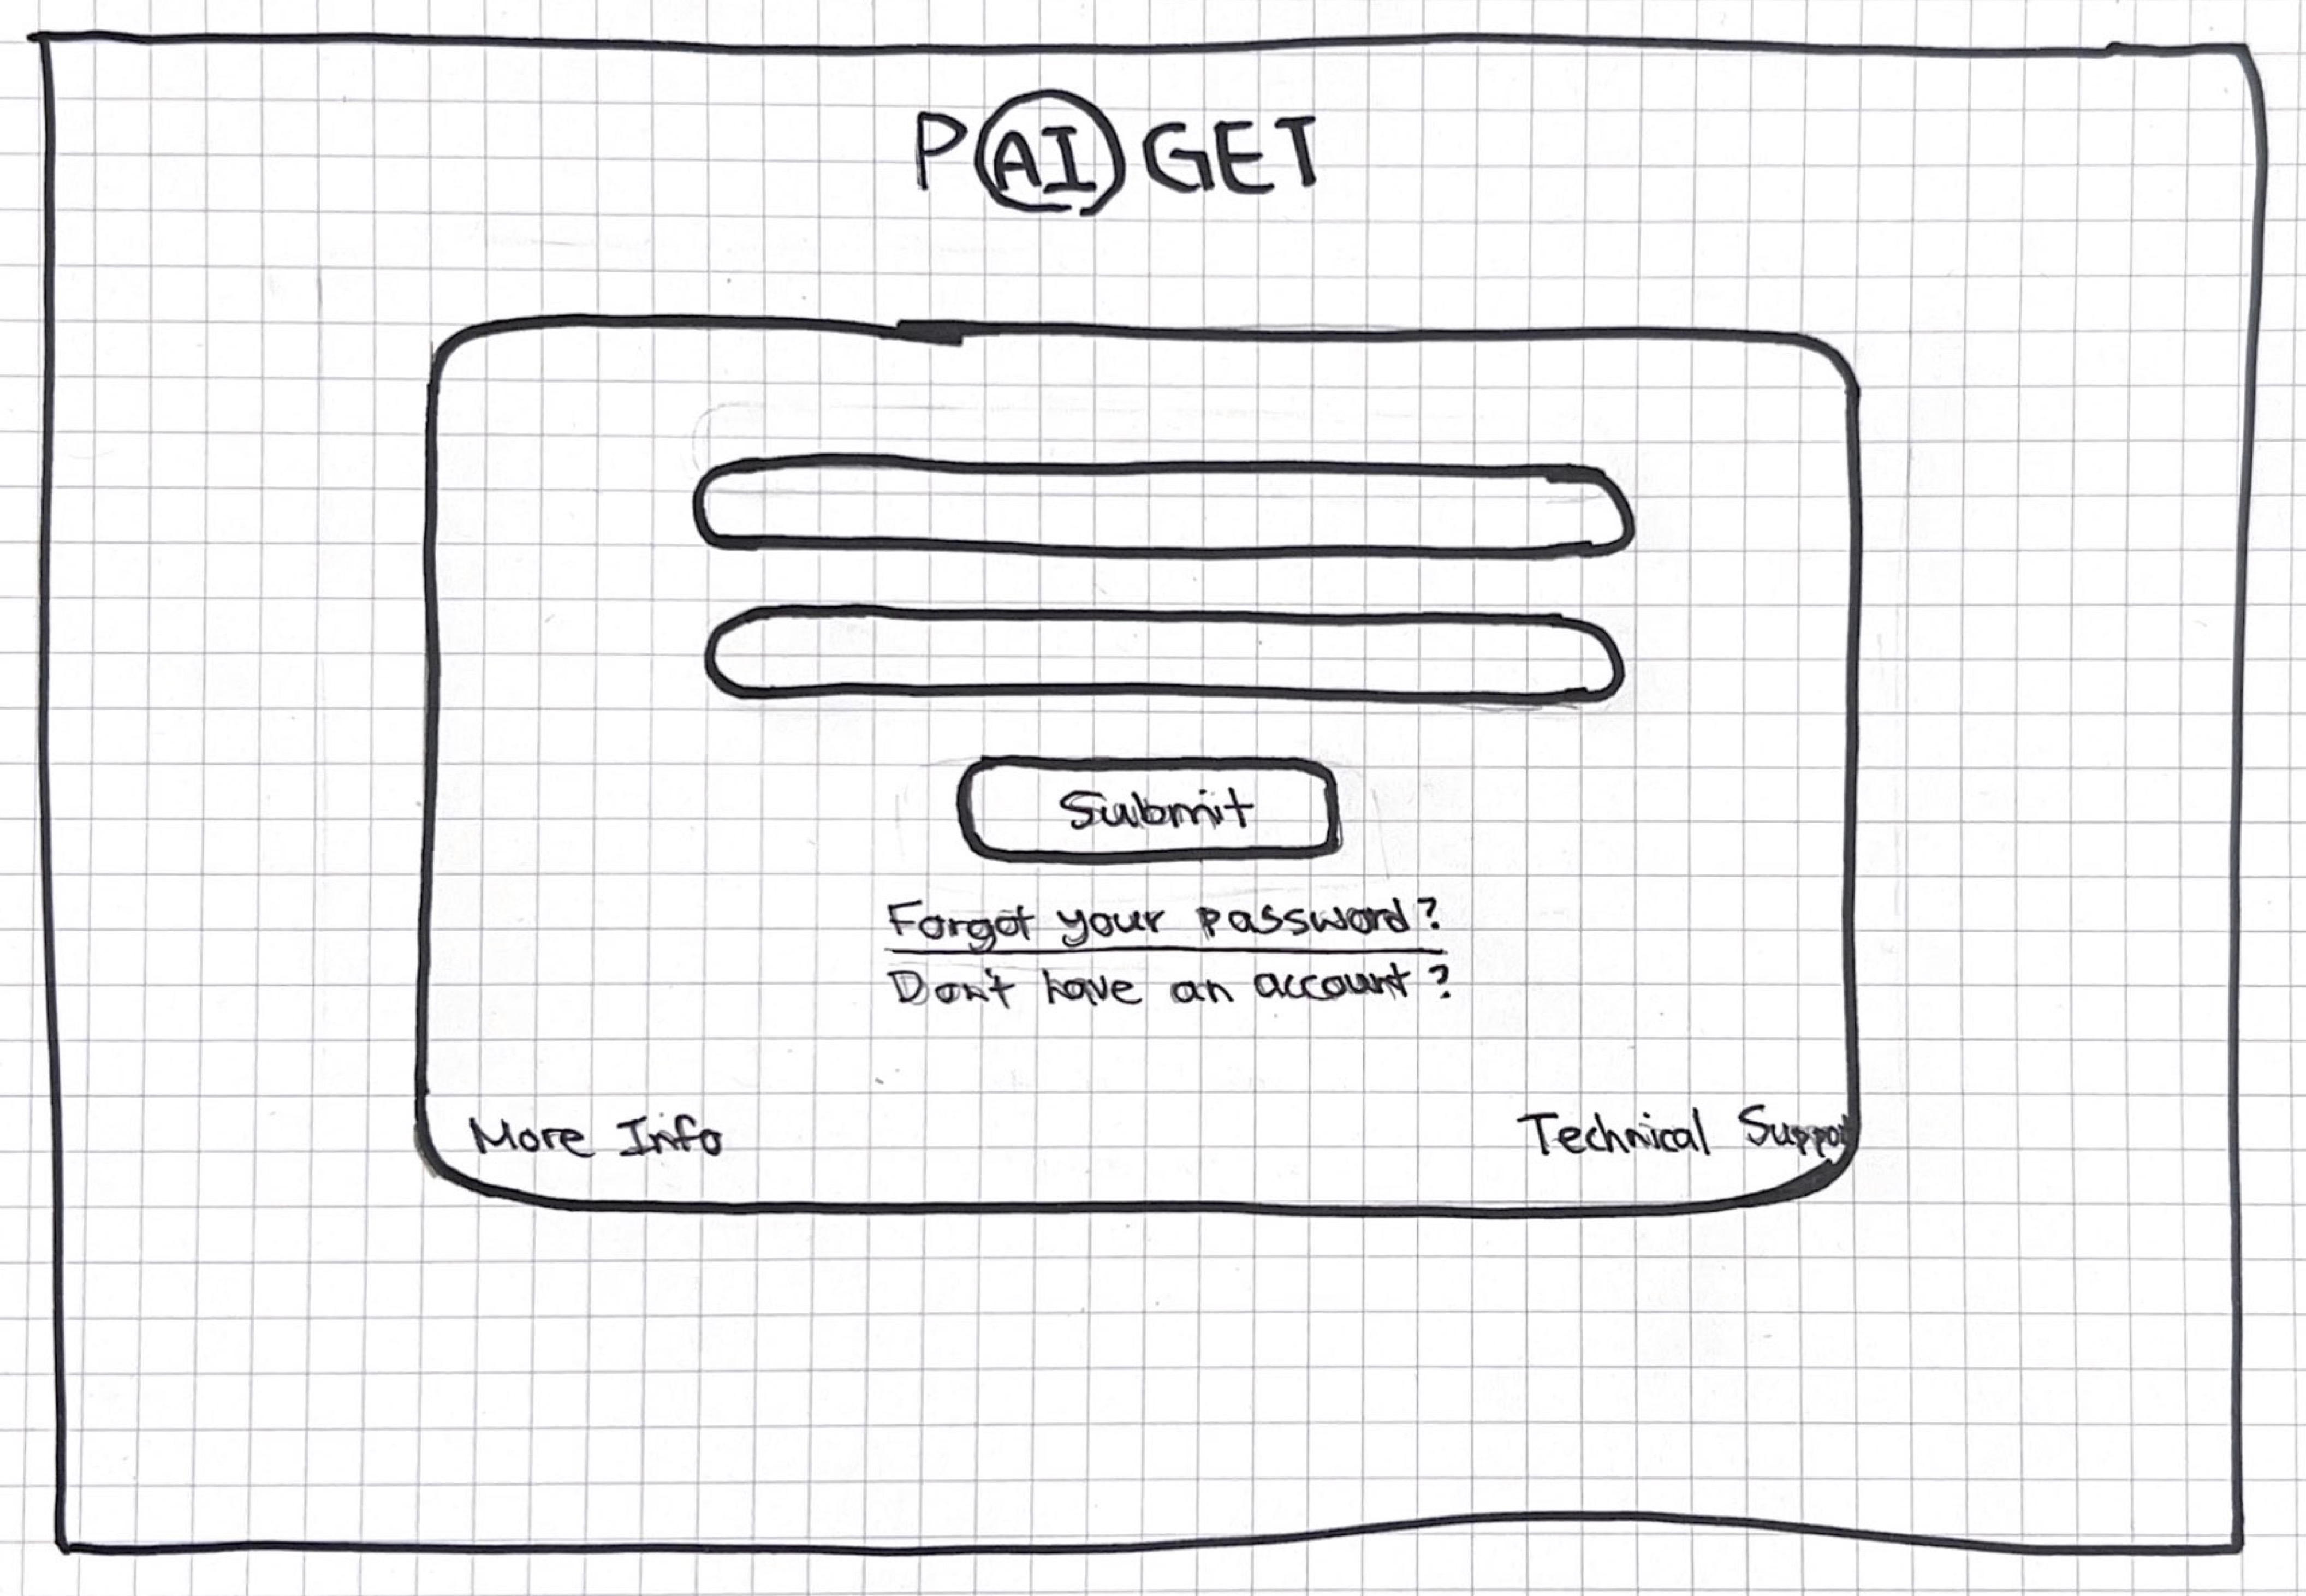 PAIGET
Submit
Forgot your password?
Don't have an account?
More Info
Technical Suppor